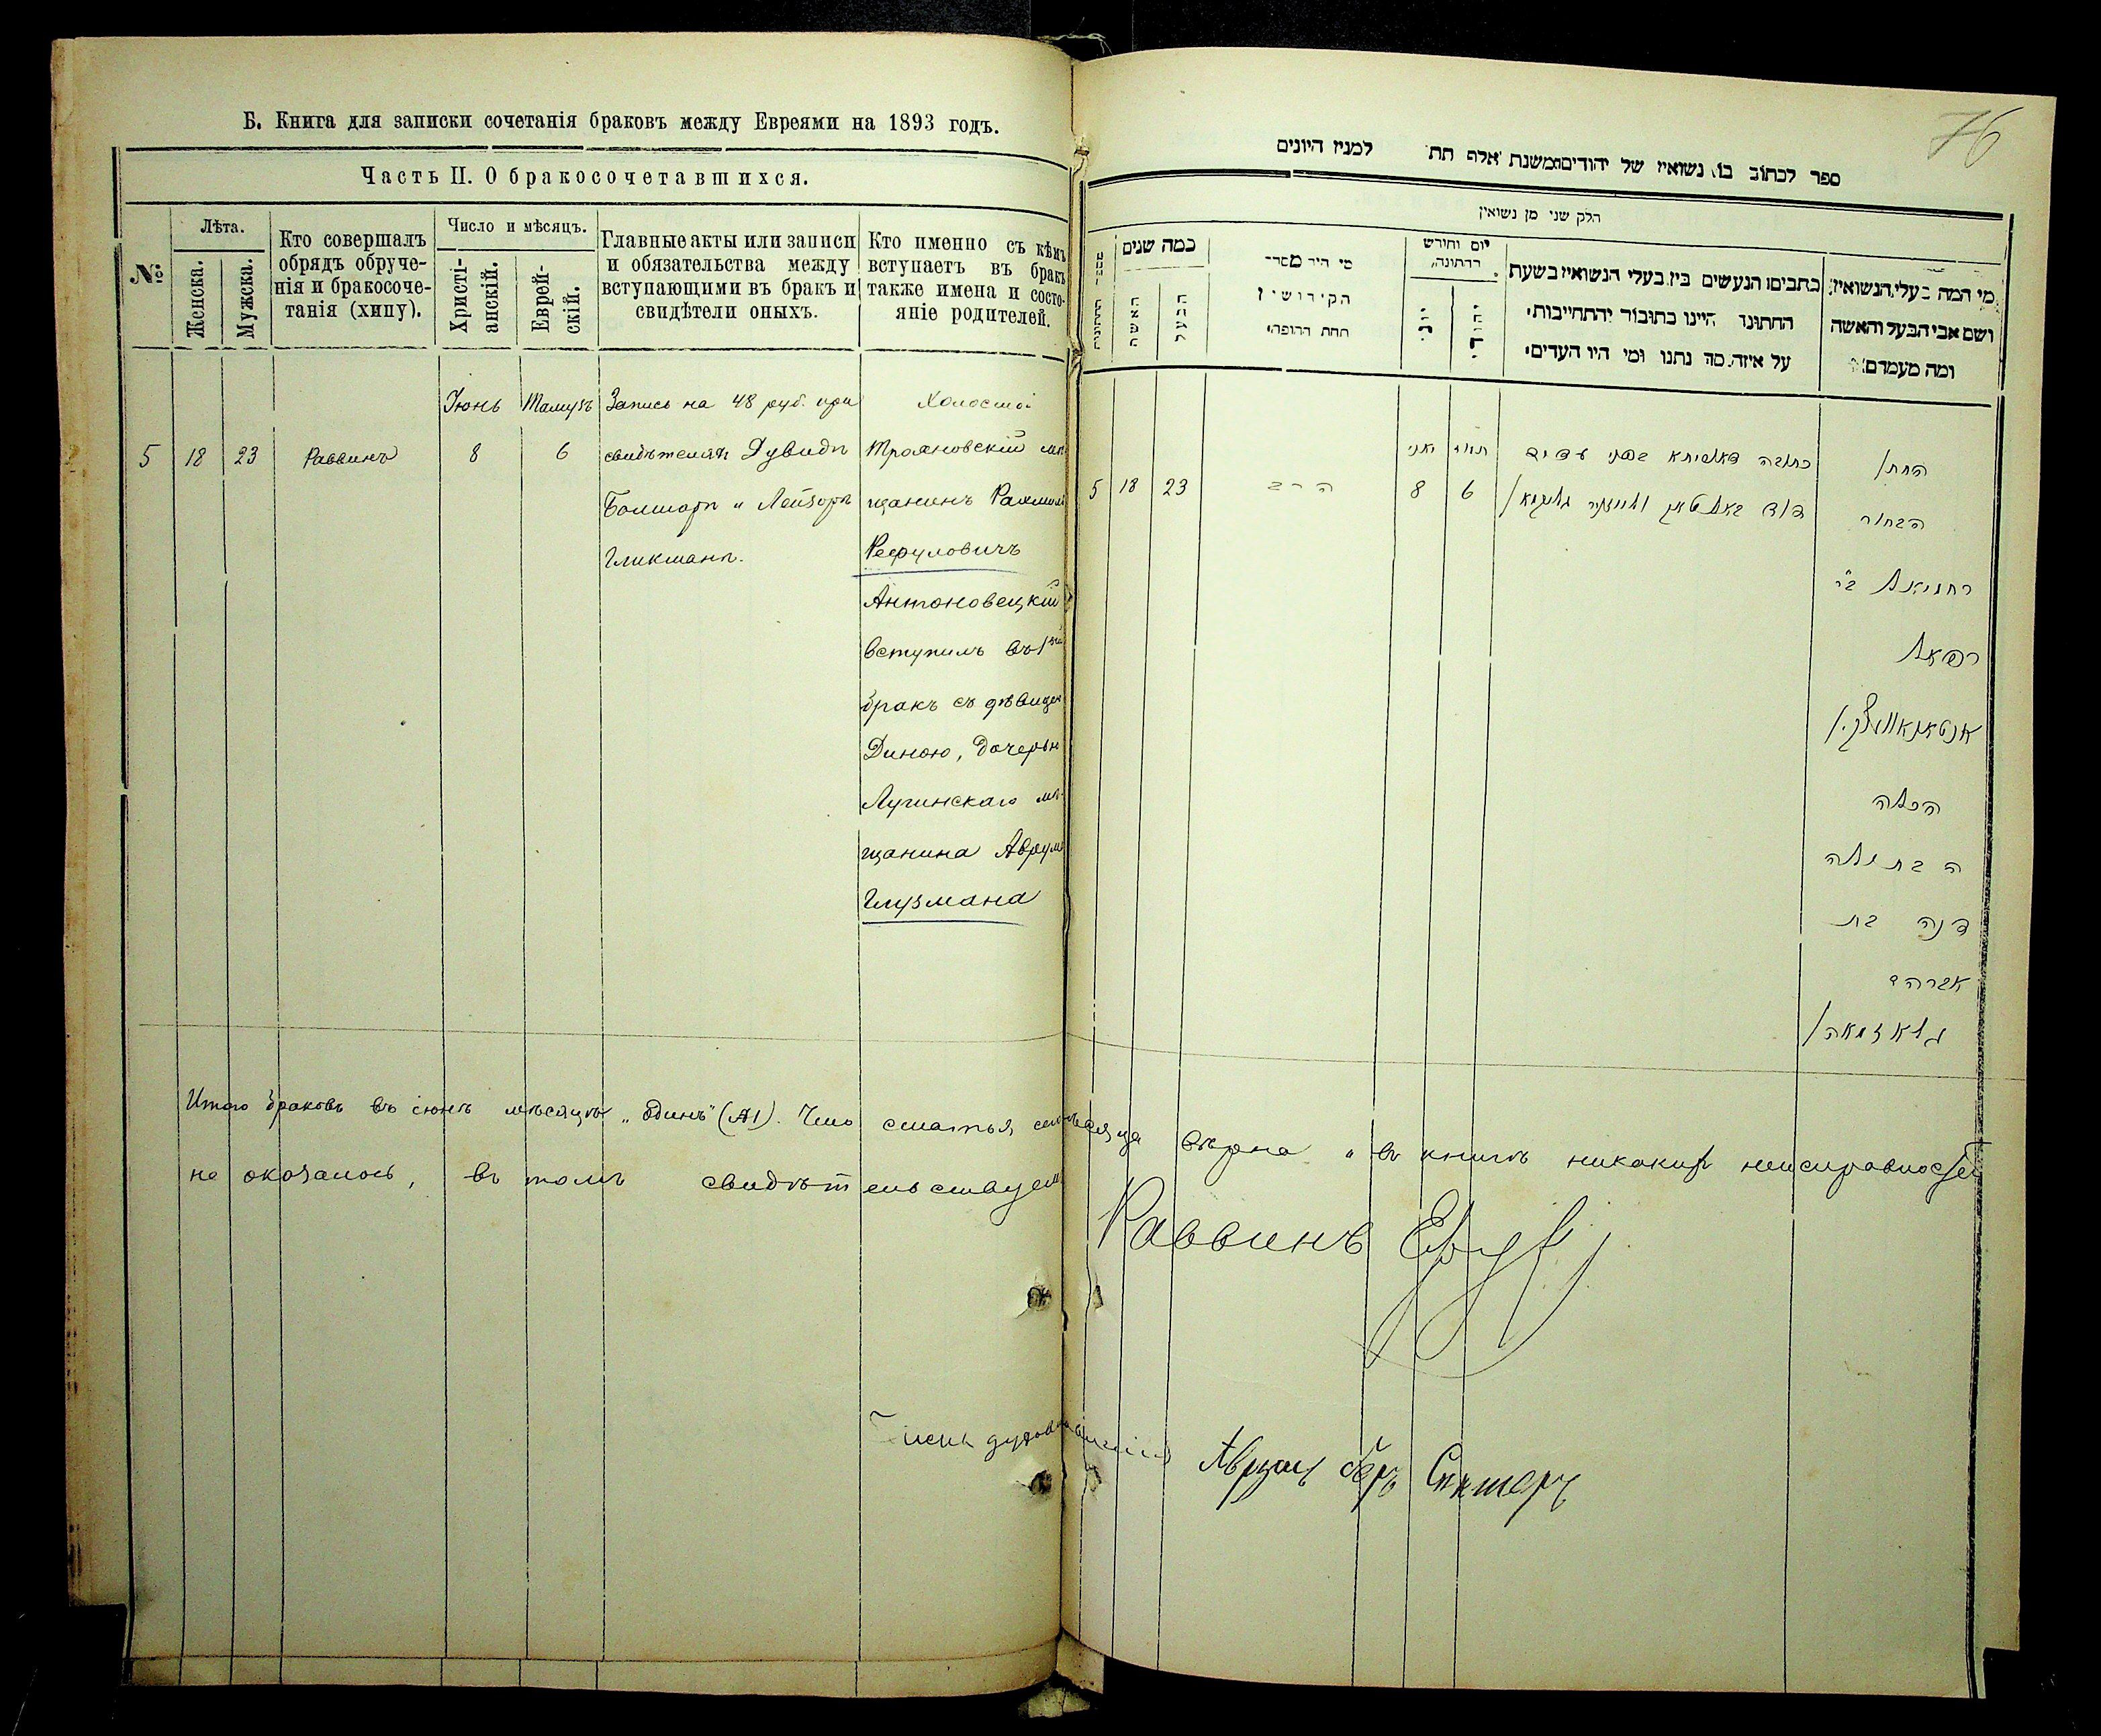 Б. Книга для записки сочетанія браковъ между Евреями на 1893 годъ.
Часть II. О бракосочетавшихся.
№
Лѣта.
Женска.
Мужска.
Кто совершалъ
обрядъ обруче-
нія и бракосоче-
танія (хипу).
Число и мѣсяцъ.
Христі-
анскій.
Еврей-
скій.
Главные акты или записи
и обязательства между
вступающими въ бракъ и
свидѣтели оныхъ.
Кто именно съ кѣмъ
вступаетъ въ бракъ
также имена и состо-
яніе родителей.
Іюнь
Тамузъ
5
18
23
Раввинъ
8
6
Запись на 48 руб. при
свидѣтеляхъ Дувидъ
Болшоръ и Лейзоръ
Гликманъ.
Холостой
Трояновскій мѣ-
щанинъ Рахмиль
Рефуловичъ
Антоновецкій
вступилъ въ 1ый
бракъ съ дѣвицею
Диною, дочерью
Лугинскаго мѣ-
щанина Аврума
Глузмана
76
ספר לכתוב בו נשואין של יהודים משנת אלף תת למנין היונים
חלק שני מן נשואין
כמה שנים
האשה
הבעל
מי היה מסדר
הקידושין
תחת החופה
יום וחודש
החתונה
יוני
יהודי
כתבים הנעשים בין בעלי הנשואין בשעת
החתונה היינו כתובות והתחייבות
על איזה סך נתנו ומי היו העדים
מי המה בעלי הנשואין
ושם אבי הבעל והאשה
ומה מעמדם
5
18
23
הרב
יוני
8
תמוז
6
כתובה דאורייתא בפני עדים
החתן
הבחור
רחמיאל ב״ר
רפאל
אנטאנאוועצקי
הכלה
הבתולה
דינה בת
אברהם
גלוזמאן
Итого браковъ въ іюнѣ мѣсяцѣ „одинъ“ (№1). Что статья сего мѣсяца вѣрна и въ книгѣ никакихъ неисправностей
не оказалось, въ томъ свидѣтельствуемъ
Раввинъ
Членъ духовнаго правленія Аврумъ Беръ